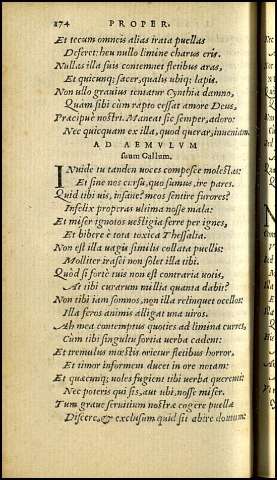 174 PROPER.
Et tecum omneis alias irata puellas
Deferet: heu nullo limine charus eris.
Nullas illa suis contemnet fletibus aras,
Et quicunq; sacer, qualis ubiq; lapis.
Non ullo grauius tentatur Cynthia damno,
Quàm sibi cùm rapto cessat amore Deus,
Præcipuè nostri. Maneat sic semper, adoro:
Nec quicquam ex illa, quod querar, inueniam.
AD AEMVLVM
suum Gallum.
INuide tu tanden uoces compesce molestas:
Et sine nos cursu, quo sumus, ire pares.
Quid tibi uis, insane? meos sentire furores?
Infelix properas ultima nosse mala:
Et miser ignotos uestigia ferre per ignes,
Et bibere è tota toxica Thessalia.
Non est illa uagis similis collata puellis:
Molliter irasci non solet illa tibi.
Quòd si fortè tuis non est contraria uotis,
At tibi curarum millia quanta dabit?
Non tibi iam somnos, non illa relinquet ocellos:
Illa feros animis alligat una uiros.
Ah mea contemptus quoties ad limina curres,
Cùm tibi singultu fortia uerba cadent:
Et tremulus mœstis orietur fletibus horror,
Et timor informem ducet in ore notam:
Et quæcunq; uoles fugient tibi uerba querenti:
Nec poteris qui sis, aut ubi, nosse miser.
Tum graue seruitium nostræ cogere puellæ
Discere, & exclusum quid sit abire domum: